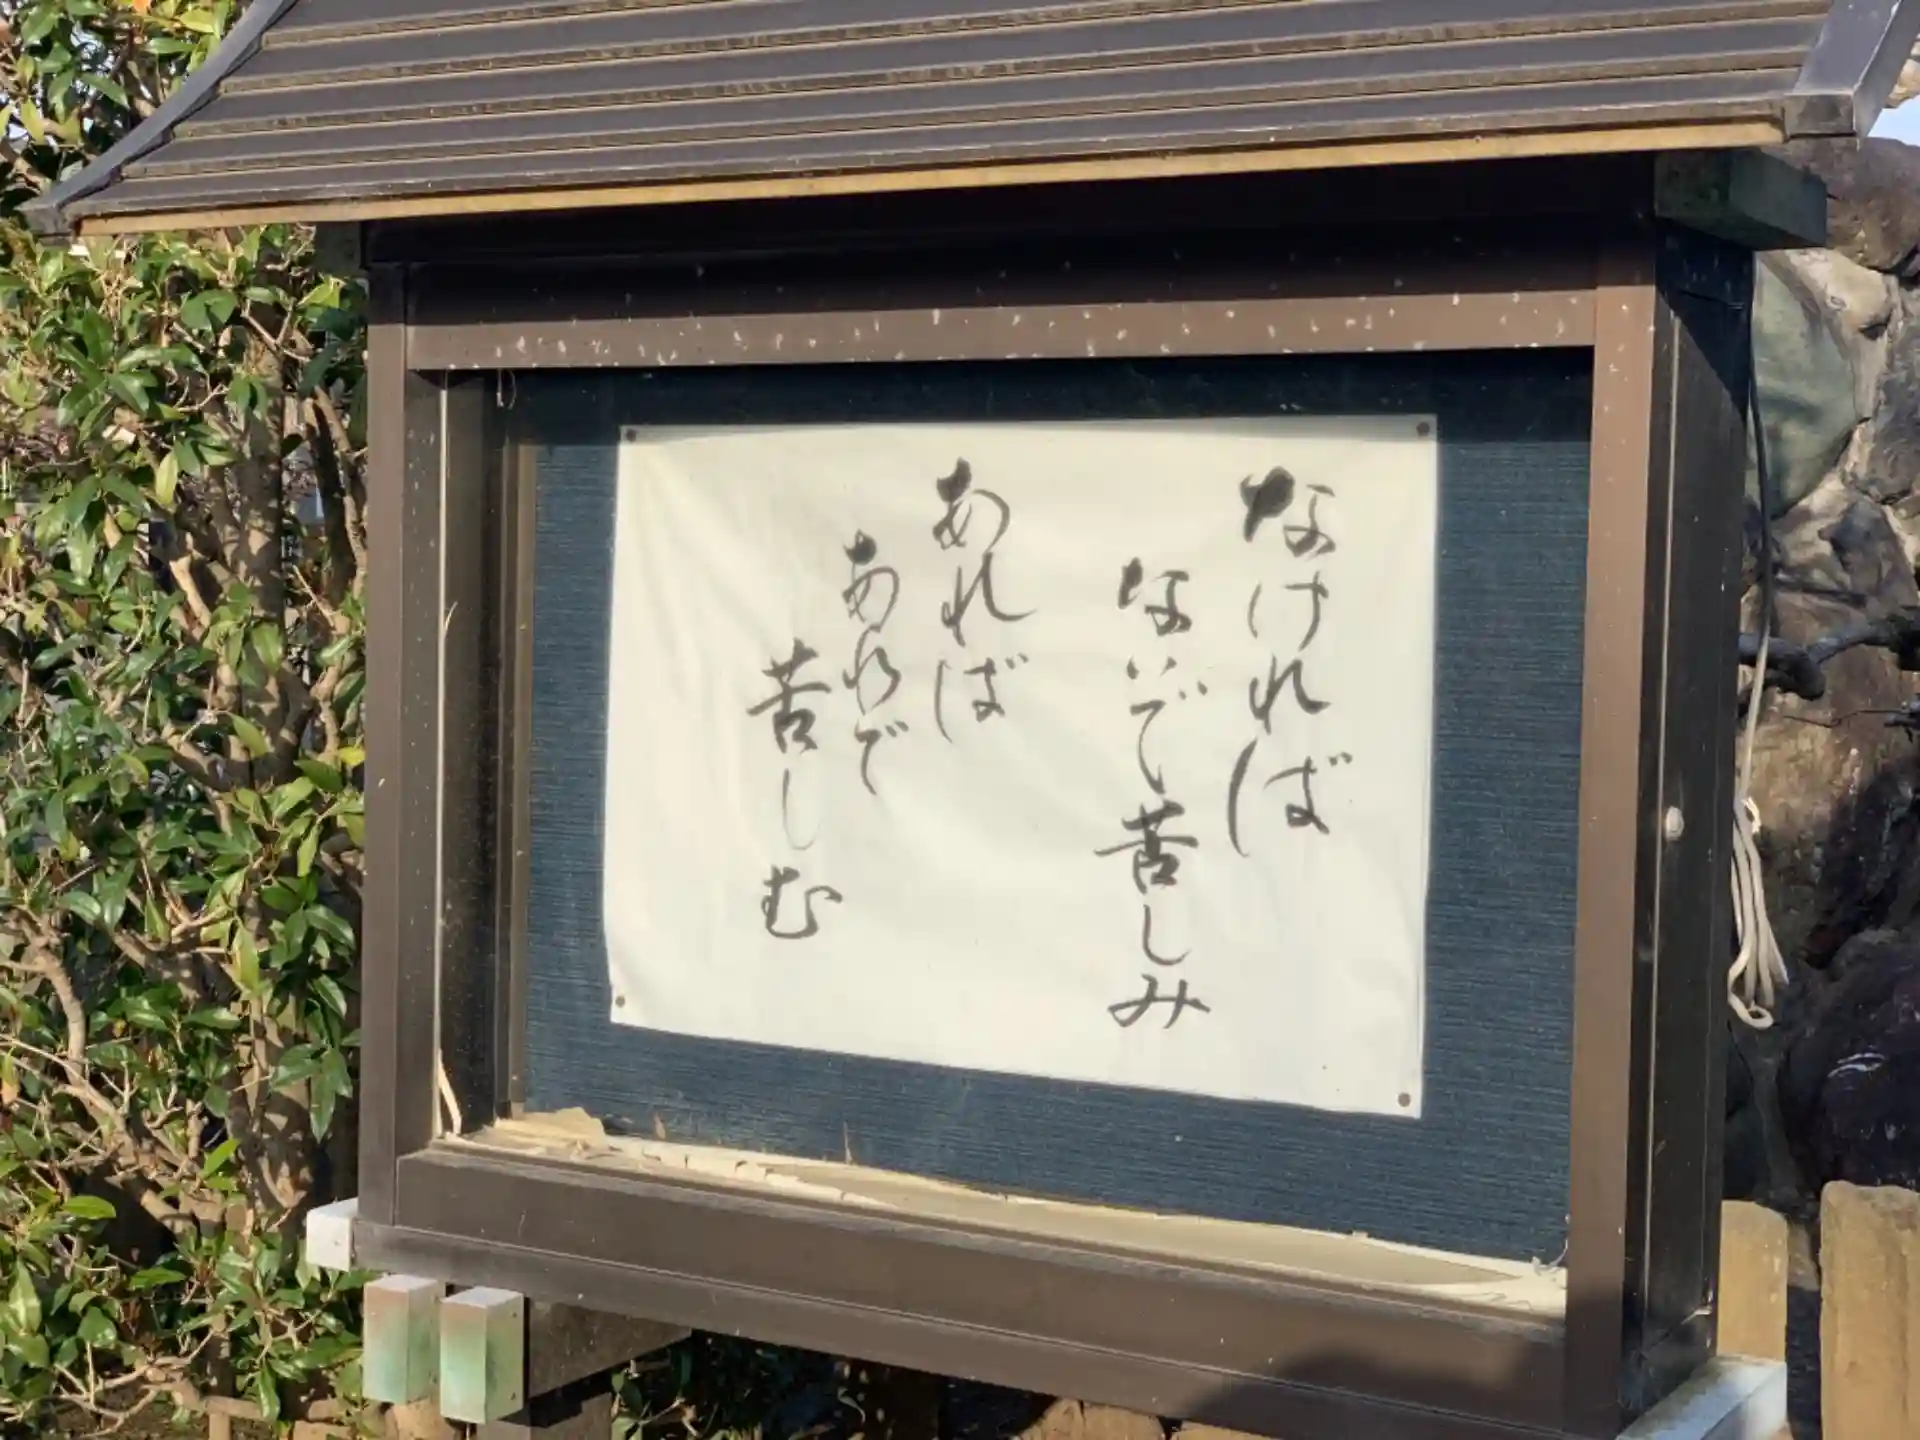 なければ
ないで苦しみ
あれば
あれで
苦しむ